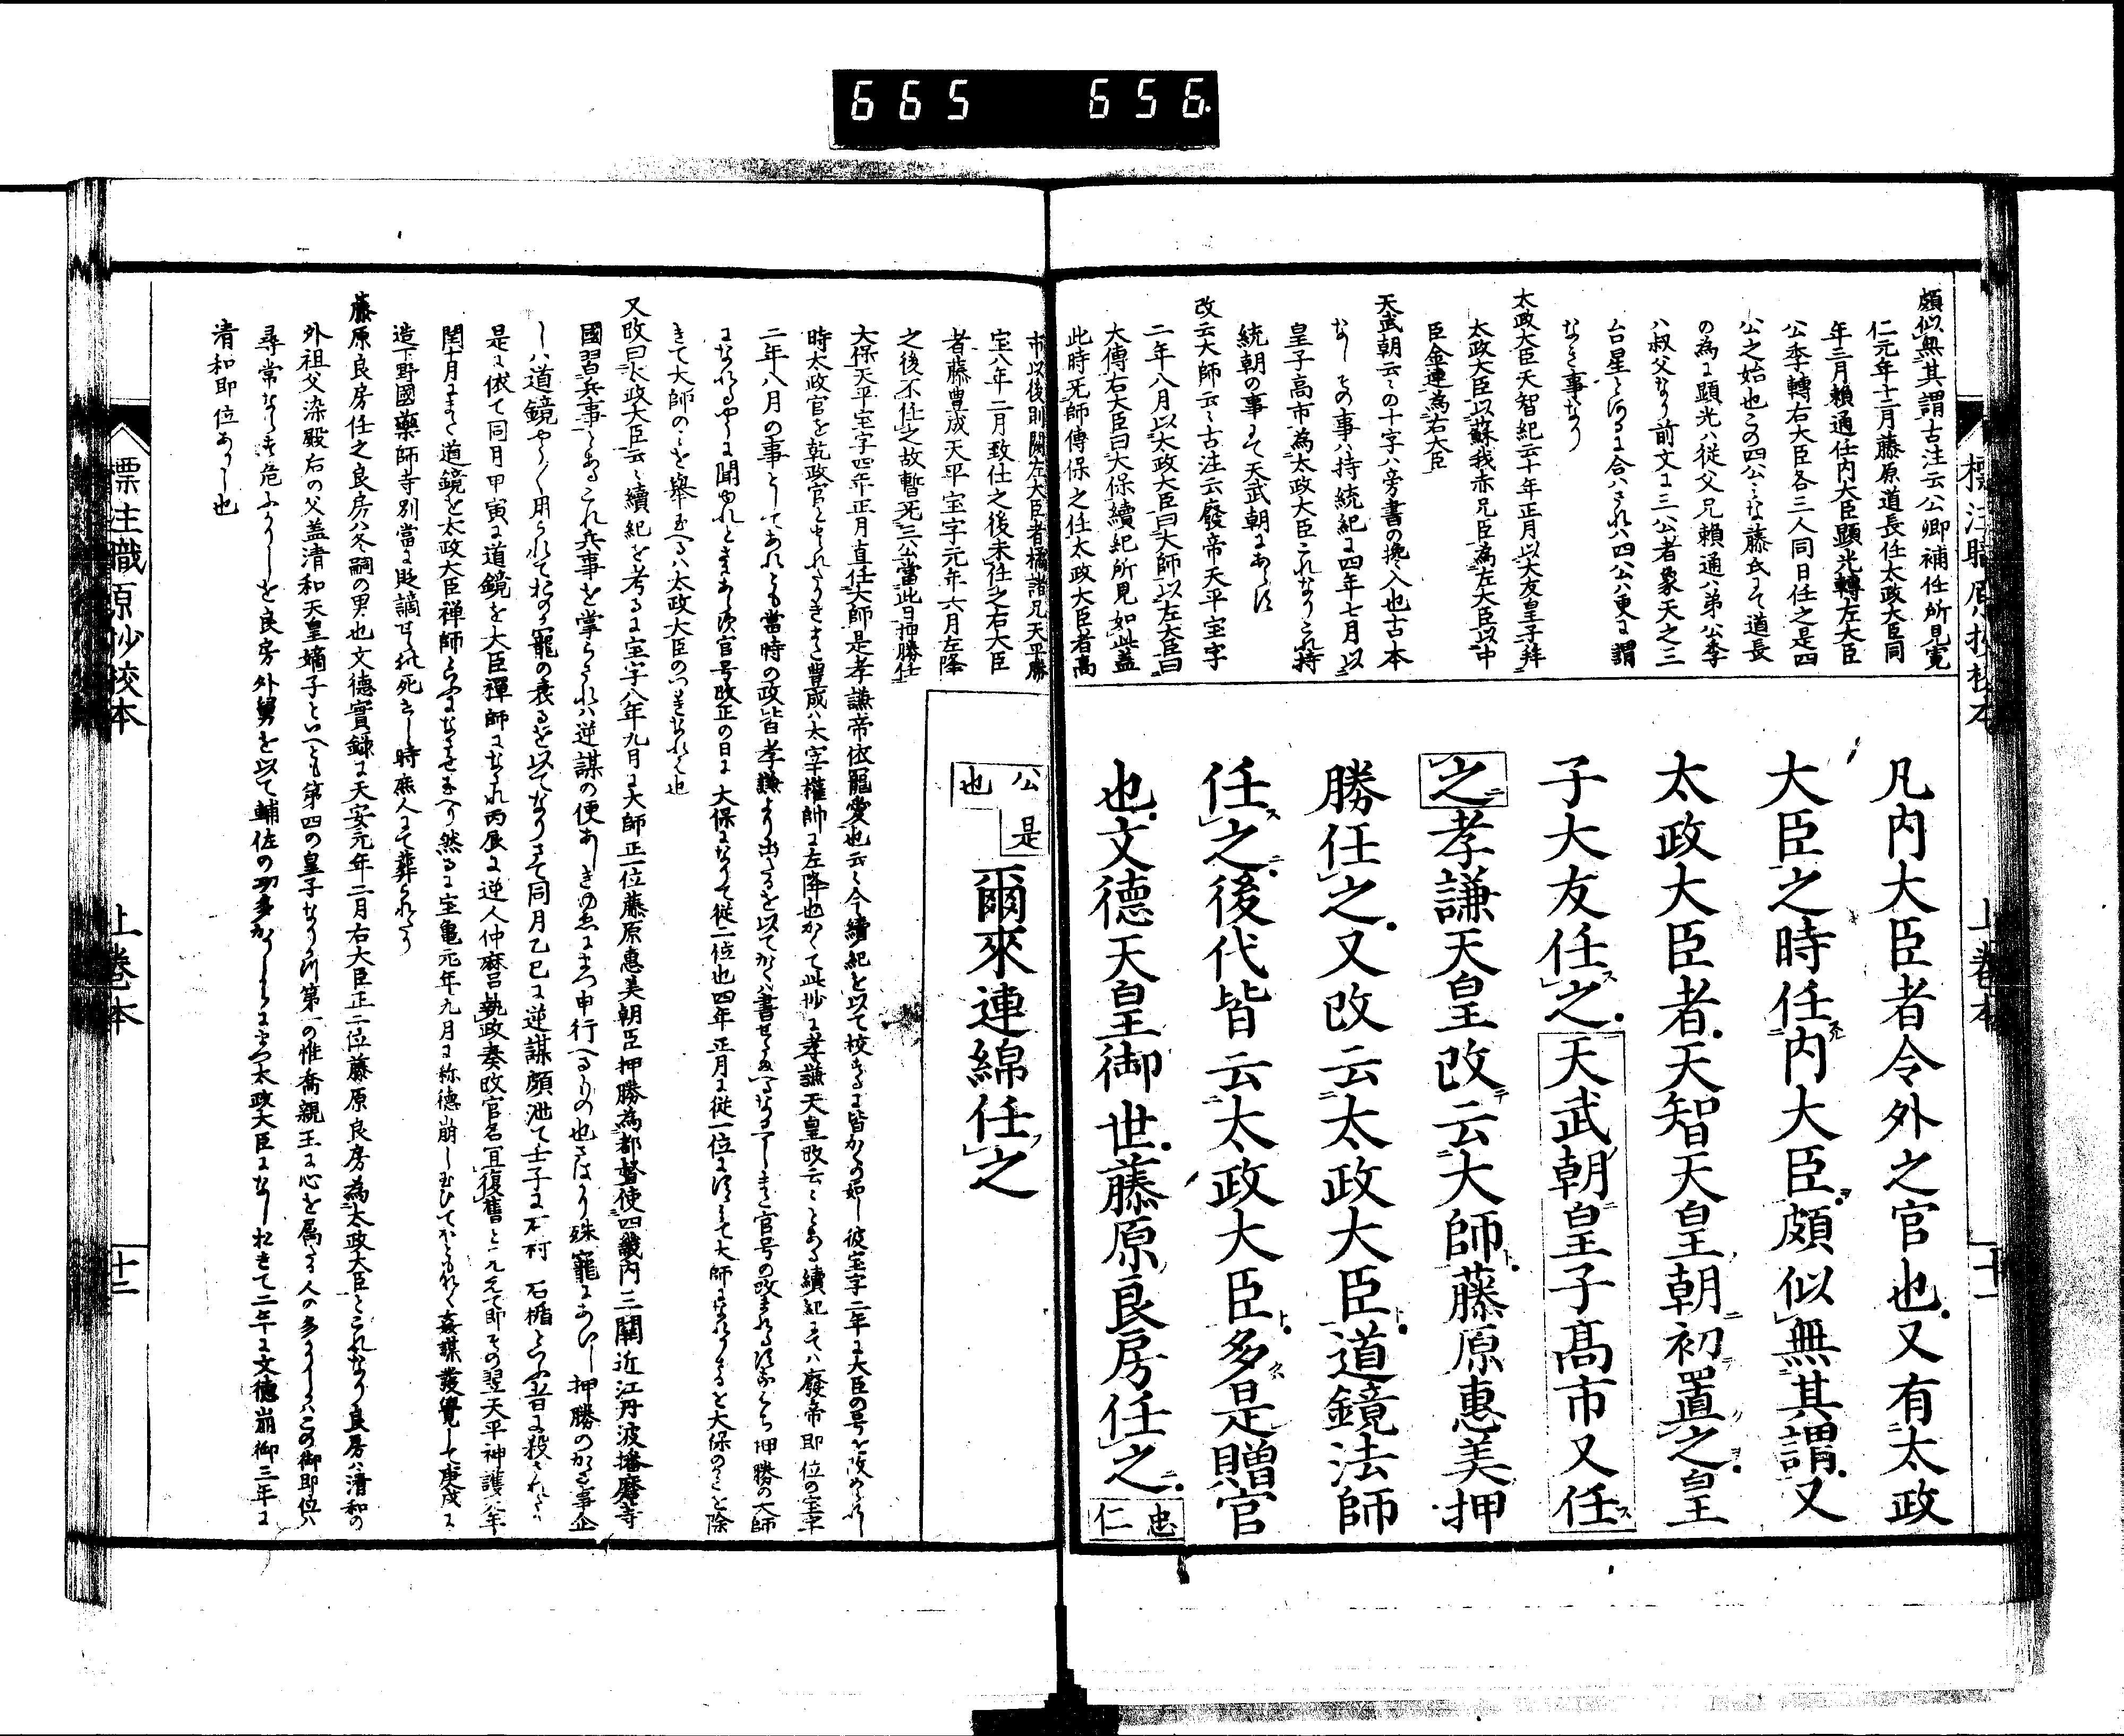 665 656.
標注職原抄校本
上巻本
十一
頗似無其謂古注云公卿補任所見寛
仁元年十二月藤原道長任太政大臣同
年三月頼通任内大臣顕光轉左大臣
公季轉右大臣各三人同日任之是四
公之始也この四公みな藤氏にて道長
の為に顕光ハ従父兄頼通ハ弟公季
ハ叔父なり前文に三公者象天之三
台星とあるに合ハされハ四公ハ更に謂
なき事なり
太政大臣天智紀云十年正月以大友皇子拜
太政大臣以蘇我赤兄臣為左大臣以中
臣金連為右大臣
天武朝云々の十字ハ旁書の攙入也古本
なしその事ハ持統紀に四年七月以
皇子高市為太政大臣これなりこれ持
統朝の事にて天武朝にあらす
改云大師云々古注云廢帝天平宝字
二年八月以太政大臣曰大師以左大臣曰
大傳右大臣曰大保續紀所見如此蓋
此時无師傳保之任太政大臣者高
凡内大臣者令外之官也又有太政
大臣之時任内大臣頗似無其謂又
太政大臣者天智天皇朝初置之皇
子大友任之天武朝皇子髙市又任
之孝謙天皇改云大師藤原惠美押
勝任之又改云太政大臣道鏡法師
任之後代皆云太政大臣多是贈官
也文德天皇御世藤原良房任之忠仁
市以後則闕左大臣者橘諸兄天平勝
宝八年二月致仕之後未任之右大臣
者藤豊成天平宝字元年六月左降
之後不任之故暫无三公當此日押勝任
大保天平宝字四年正月直任大師是孝謙帝依寵愛也云々今續紀を以て校するに皆かくの如し彼宝字二年に大臣の号を改めら
時太政官を乾政官と豊成ハ太宰權帥に左降也かくて此抄に孝謙天皇改云々とある續紀にてハ廢帝即位の宝字
二年八月の事としてあれとも當時の政皆孝謙より出たるを以てかくハ書官号の改押勝の大師
になれるやうに聞ゆれと官号改正の日に大保になりて従二位也四年正月に従一位にて大師を大保のことを除
きて大師のことを擧玉へるハ太政大臣のつゝきなれは也
又改曰太政大臣云々續紀を考るに宝字八年九月に大師正一位藤原惠美朝臣押勝為都督使四畿内三關近江丹波播磨等
國習兵事とあるこれ兵事を掌られハ逆謀の便申行へるもの也殊寵押勝の事企
しハ道鏡やうやく用られておのか寵の衰るを以てなりさて同月乙巳に逆謀頗泄て壬子に石村石楯といふ者に殺されたり
是に依て同月甲寅に道鏡を大臣禪師になされ丙辰に逆人仲麻呂執政奏改官名宜復舊とみえて即その翌天平神護元年
閏十月にまた道鏡を太政大臣禅師といふになさせ玉へり然るに宝亀元年九月に称徳崩し玉ひて姦謀發覺して庚戌に
造下野國藥師寺別當に貶謫せられ死せし時庶人にて葬られたり
藤原良房任之良房ハ冬嗣の男也文徳實録に天安元年二月右大臣正二位藤原良房為太政大臣とこれなり良房ハ清和の
外祖父染殿后の父蓋清和天皇嫡子といへとも第四の皇子なり第一の惟喬親王に心を属する人の多かりしハこの御即位ハ
尋常ならす危ふかりしを良房外舅を以て輔佐の功多かりしによつて太政大臣になし二年に文徳崩御三年に
清和即位ありし也
公是也
爾來連綿任之
標注職原抄校本
上巻本
十二